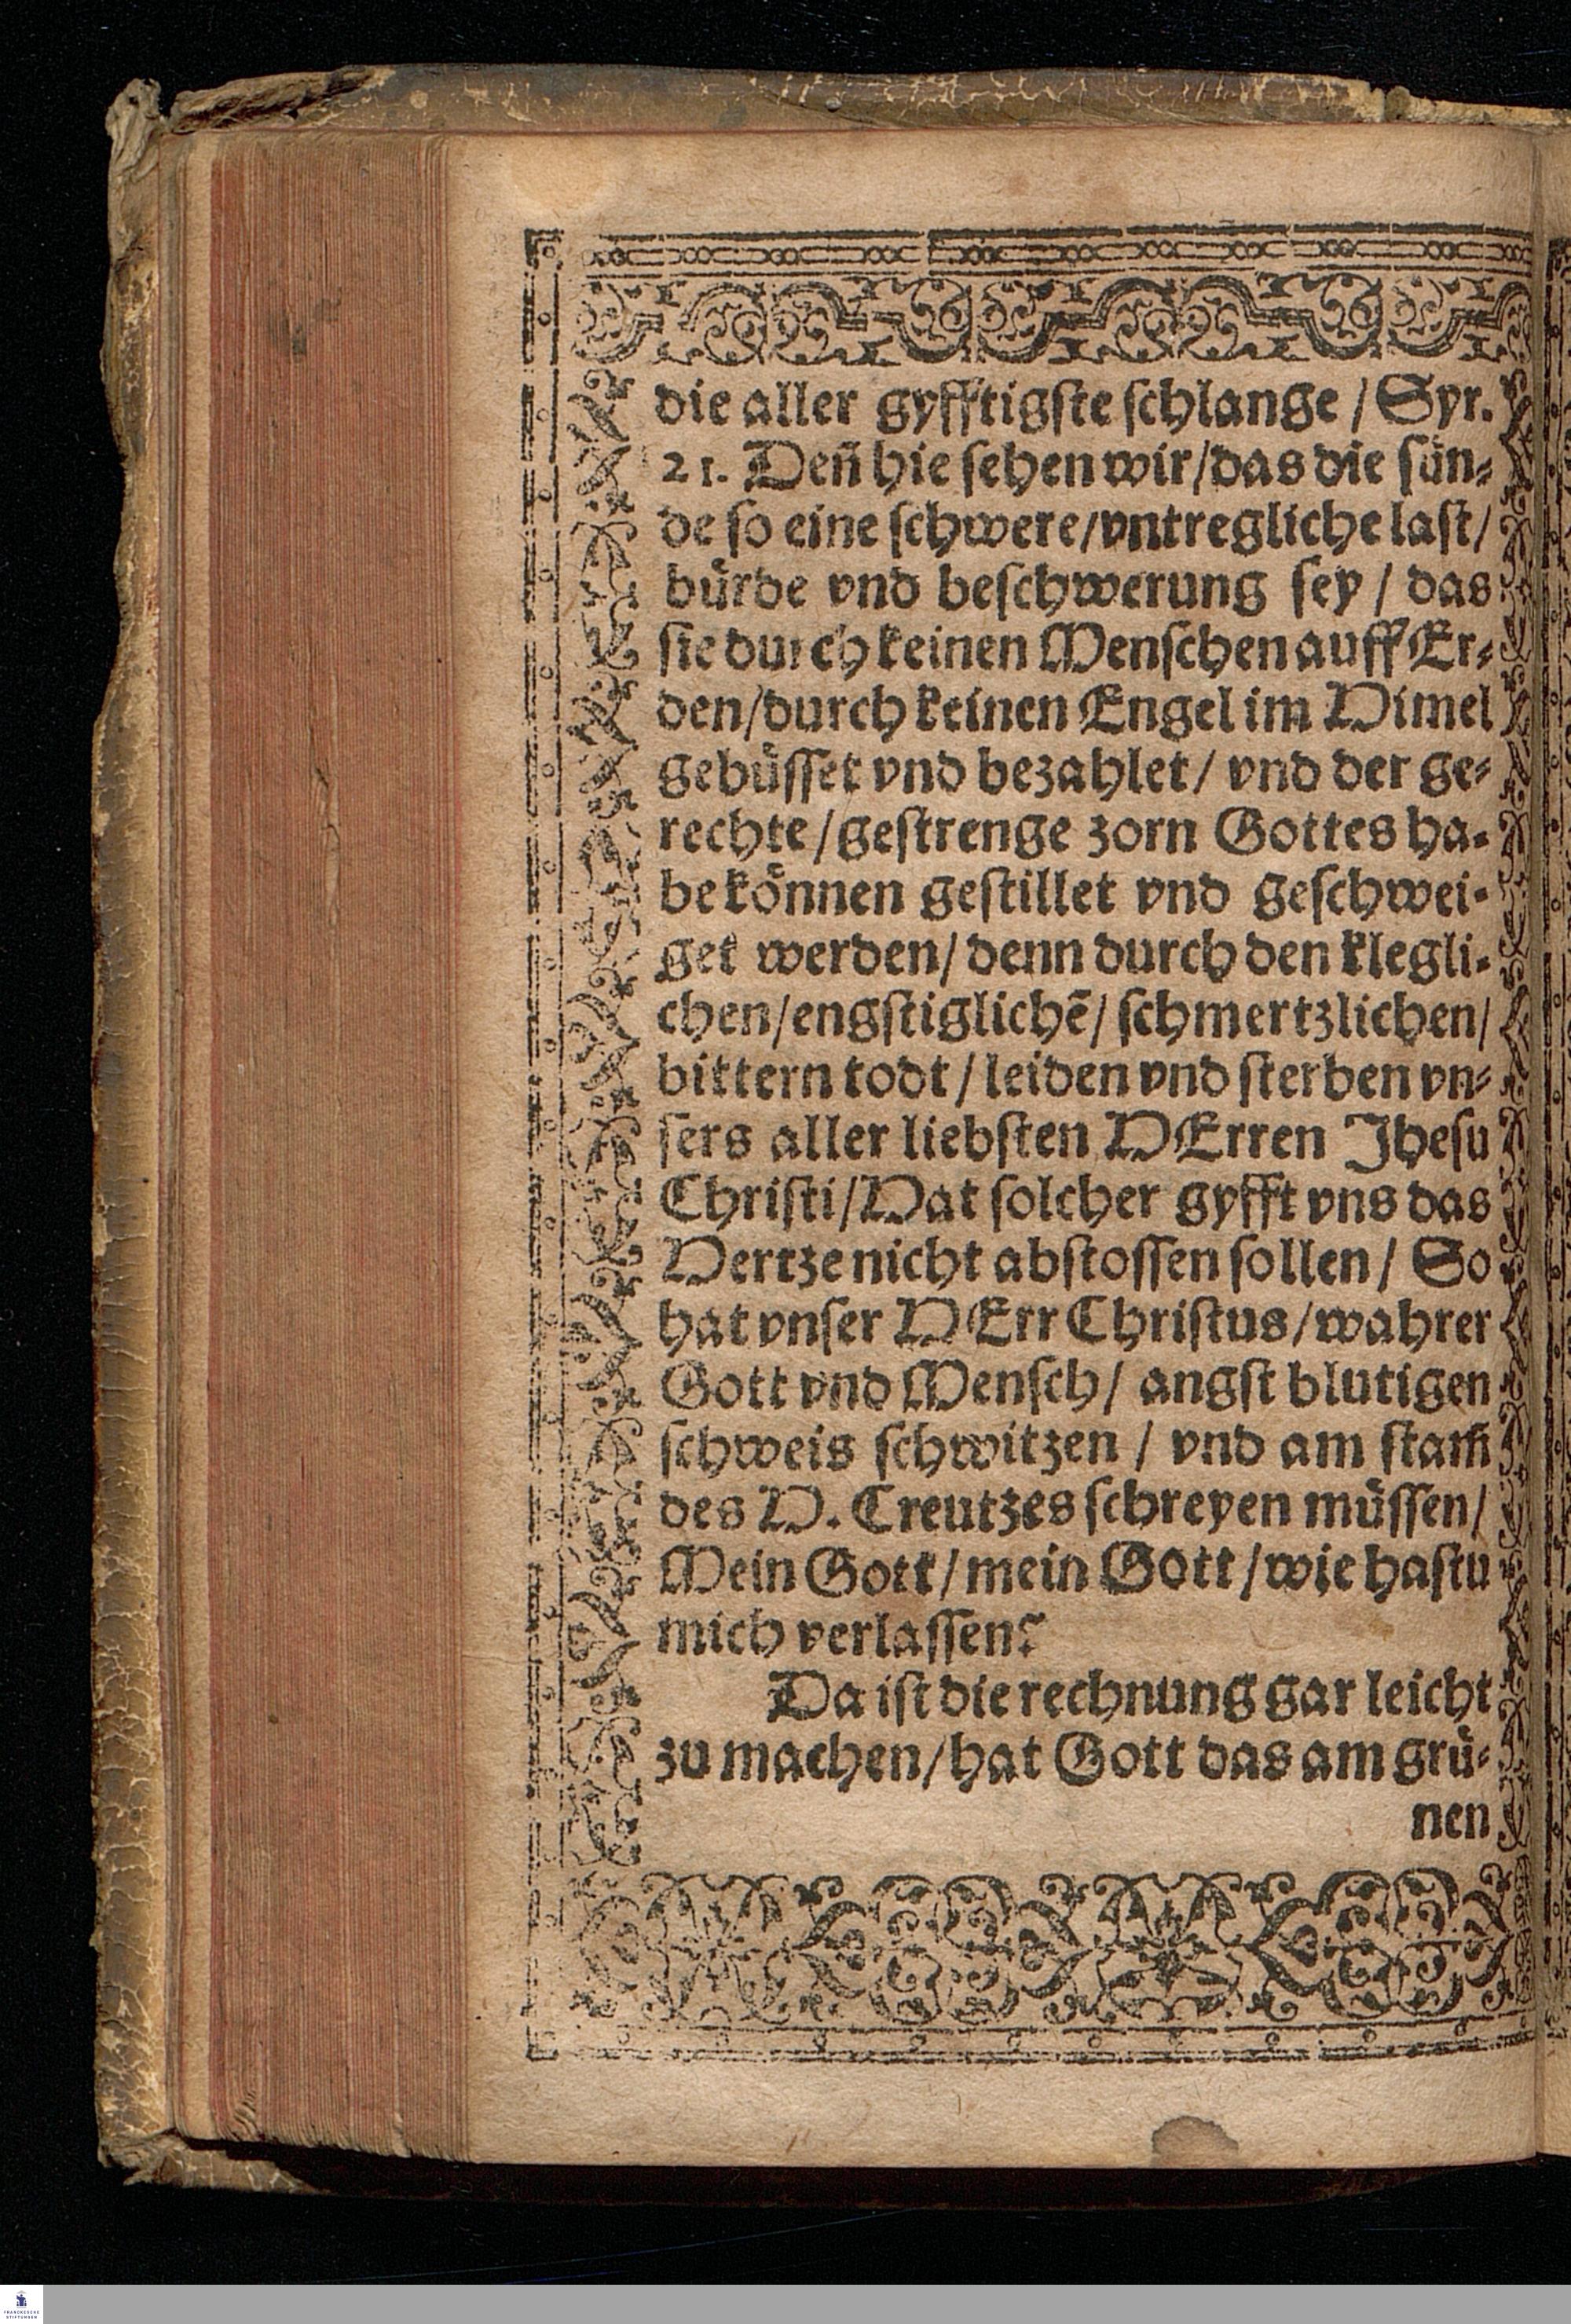 die aller gyfftigste schlange / Syr.
21. Deñ hie sehen wir/das die sün-
de so eine schwere/vntregliche last/
bürde vnd beschwerung sey / das
sie durch keinen Menschen auff Er-
den/durch keinen Engel im Himel
gebüsset vnd bezahlet/ vnd der ge-
rechte/gestrenge zorn Gottes ha-
be können gestillet vnd geschwei-
get werden/ denn durch den klegli-
chen/engstiglichē/ schmertzlichen/
bittern todt / leiden vnd sterben vn-
sers aller liebsten HErren Jhesu
Christi/Hat solcher gyfft vns das
Hertze nicht abstossen sollen/ So
hat vnser HErr Christus/wahrer
Gott vnd Mensch/ angst blutigen
schweis schwitzen / vnd am stam̃
des H. Creutzes schreyen müssen/
Mein Gott/mein Gott/wie hastu
mich verlassen?
Da ist die rechnung gar leicht
zu machen/hat Gott das am grü-
nen
FRANCKESCHE
STIFTUNGEN